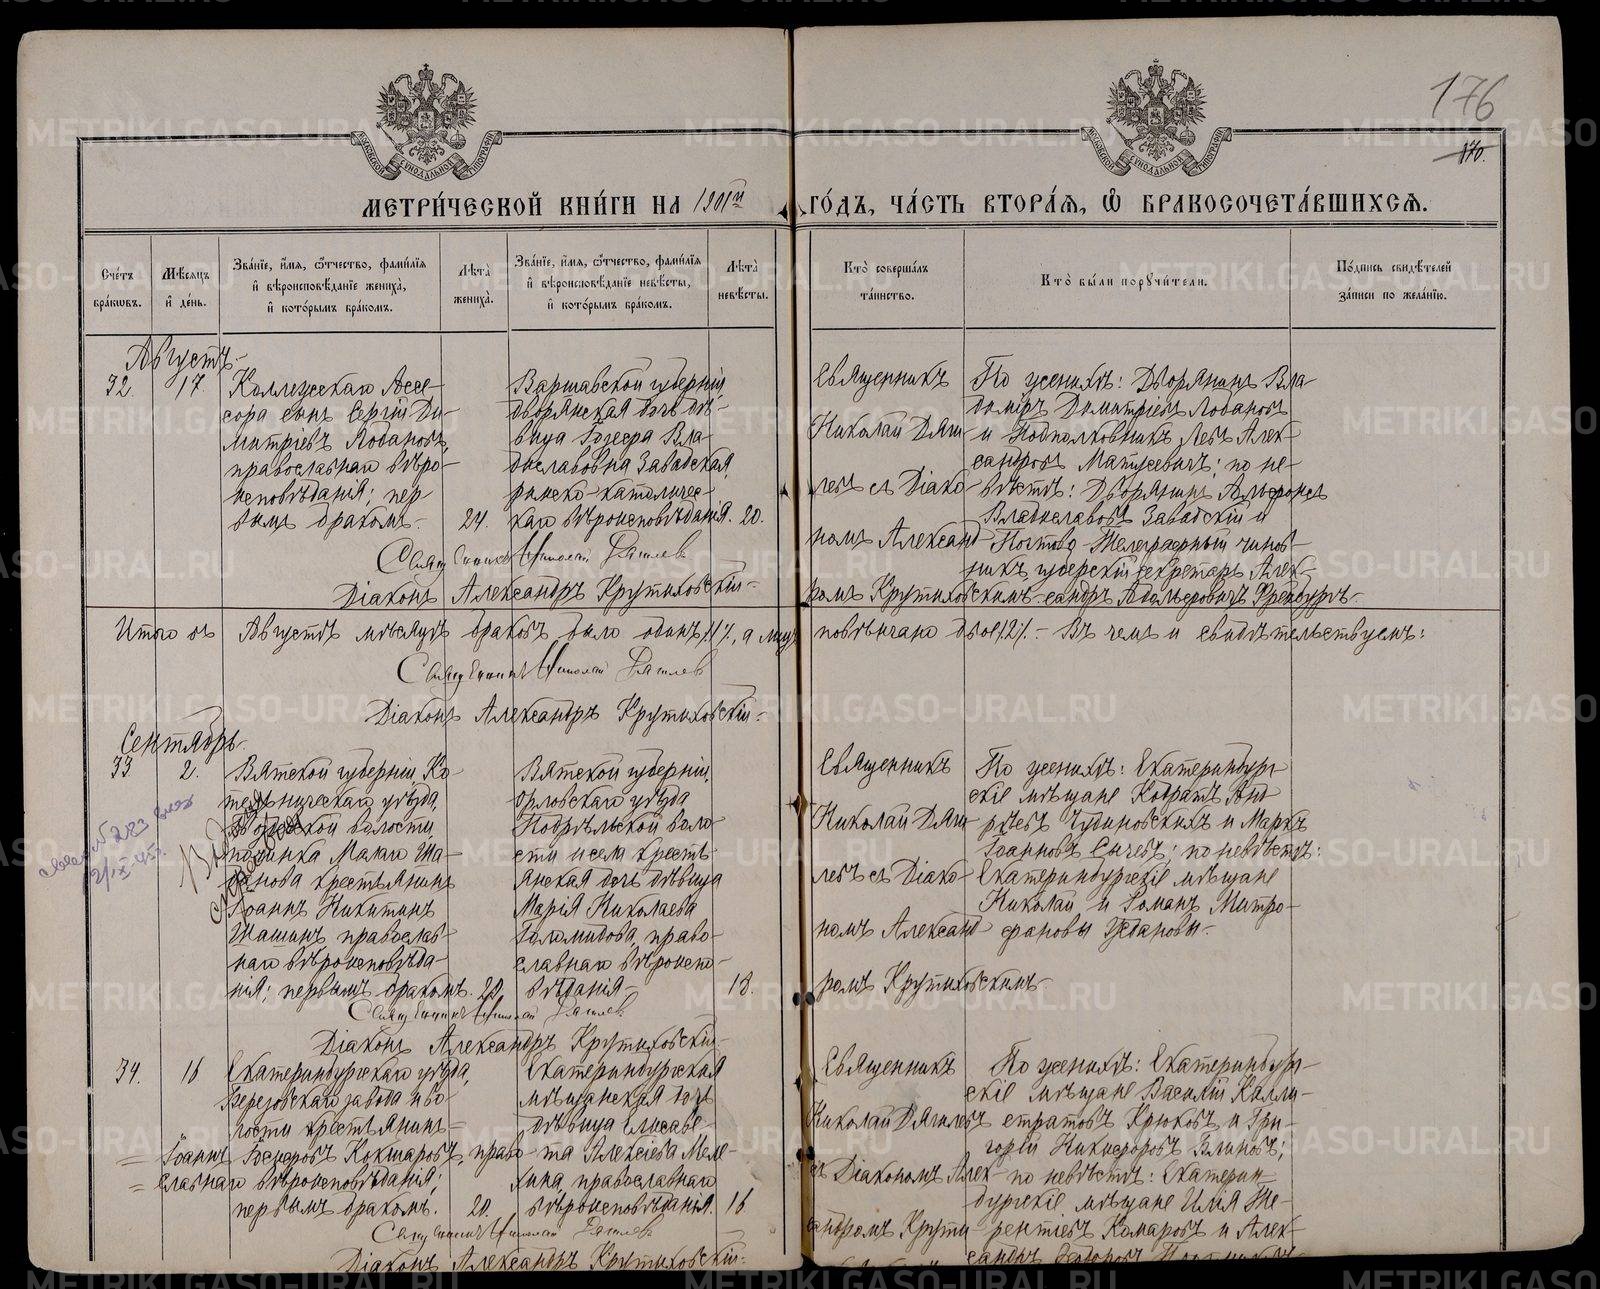 176
170.
МЕТРИЧЕСКОЙ КНИГИ НА 1901й ГОДЪ, ЧАСТЬ ВТОРАЯ, Ѡ БРАКОСОЧЕТАВШИХСЯ.
Счетъ браковъ.
Мѣсяцъ и день.
Званіе, имя, ѻтчество, фамилія и вѣроисповѣданіе жениха, и которымъ бракомъ.
Лѣта жениха.
Званіе, имя, ѻтчество, фамилія и вѣроисповѣданіе невѣсты, и которымъ бракомъ.
Лѣта невѣсты.
Кто совершалъ таинство.
Кто были поручители.
Подпись свидѣтелей записи по желанію.
Августъ
32. 17.
Коллежскаго Ассе-
сора сынъ Сергій Ди-
митріевъ Лобановъ,
православнаго вѣро-
исповѣданія; пер-
вымъ бракомъ.
24.
Варшавской губерніи,
дворянская дочь дѣ-
вица Вла-
диславовна Завадская,
римско-католичес-
каго вѣроисповѣданія.
20.
Священникъ
Николай Дяги-
левъ съ Діако-
номъ Александ-
ромъ Крутиховскимъ
По женихѣ: Дворянинъ Вла-
диміръ Димитріевъ Лобановъ
и Подполковникъ Левъ Алек-
сандровъ Матусевичъ; по не-
вѣстѣ: Дворянинъ Альфонсъ
Владиславовъ Завадскій и
Почтово-Телеграфный чинов-
никъ, губернскій секретарь Алек-
сандръ Адольфовичъ
Священникъ Николай Дягилев
Діаконъ Александръ Крутиховскій
Итого въ Августѣ мѣсяцѣ браковъ было одинъ /1/, а лицъ повѣнчано двое /2/. – Въ чемъ и свидѣтельствуемъ:
Священникъ Николай Дягилев
Діаконъ Александръ Крутиховскій
Сентябрь
33 2.
Вятской губерніи, Ко-
тельническаго уѣзда,
волости
починка Малаго Ша-
крестьянинъ
Іоаннъ Никитинъ
Шашинъ, православ-
наго вѣроисповѣда-
нія; первымъ бракомъ.
20.
Вятской губерніи,
Орловскаго уѣзда
Подрѣльской воло-
сти и села кресть-
янская дочь дѣвица
Марія Николаева
право-
славнаго вѣроиспо-
вѣданія
18.
Священникъ
Николай Дяги-
левъ съ Діако-
номъ Александ-
ромъ Крутиховскимъ
По женихѣ: Екатеринбург-
скіе мѣщане Кодратъ Анд-
реевъ Чудиновскихъ и Маркъ
Іоанновъ Сычевъ; по невѣстѣ:
Екатеринбургскіе мѣщане
Николай и Романъ Митро-
фановы
Священникъ Николай Дягилев
Діаконъ Александръ Крутиховскій
34. 16
Екатеринбургскаго уѣзда,
Березовскаго завода и во-
лости крестьянинъ
Іоаннъ Кокшаровъ, право-
славнаго вѣроисповѣданія;
первымъ бракомъ.
20.
Екатеринбургская
мѣщанская дочь
дѣвица Елисаве-
та Алексіева Меле-
хина, православнаго
вѣроисповѣданія.
16
Священникъ
Николай Дягилевъ
съ Діакономъ Алек-
сандромъ Крути
По женихѣ: Екатеринбург-
скіе мѣщане Василій Калли-
стратовъ Крюковъ и Гри-
горій Никифоровъ Блиновъ;
по невѣстѣ: Екатерин-
бургскіе мѣщане Илія Те-
рентіевъ Комаровъ и Алек-
сандръ
Священникъ Николай Дягилев
Діаконъ Александръ Крутиховскій
METRIKI.GASO-URAL.RU